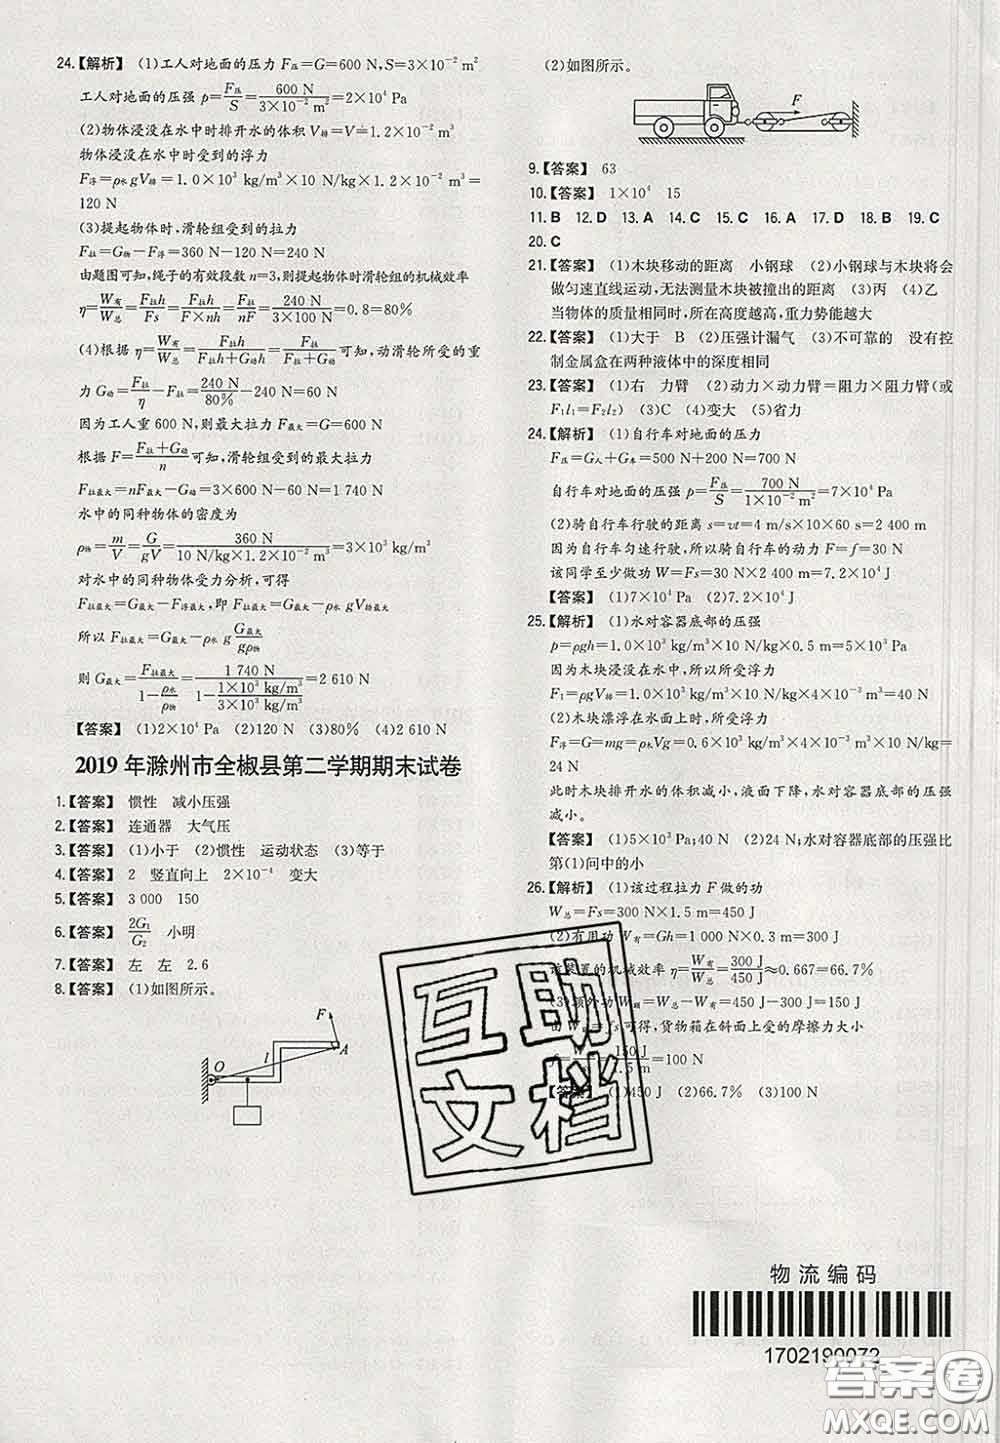 24.【解析】 (1)工人对地面的压力 F压=G=600 N,S=3×10⁻² m²
工人对地面的压强 p=F压/S=600 N/(3×10⁻² m²)=2×10⁴ Pa
(2)物体浸没在水中时排开水的体积 V排=V=1.2×10⁻² m³
物体浸没在水中时受到的浮力
F浮=ρ水gV排=1.0×10³ kg/m³×10 N/kg×1.2×10⁻² m³=
120 N
(3)提起物体时,滑轮组受到的拉力
F拉=G物-F浮=360 N-120 N=240 N
由题图可知,绳子的有效段数 n=3,则提起物体时滑轮组的机械效率
η=W有/W总=F拉h/Fs=F拉h/(F×nh)=F拉/nF=240 N/(3×100 N)=0.8=80%
(4)根据 η=W有/W总=F拉h/(F拉h+G动h)=F拉/(F拉+G动)可知,动滑轮所受的重
力 G动=F拉/η-F拉=240 N/80%-240 N=60 N
因为工人重 600 N,则最大拉力 F=G=600 N
根据 F=(F拉+G动)/n可知,滑轮组受到的最大拉力
F拉最大=nF-G动=3×600 N-60 N=1 740 N
水中的同种物体的密度为
ρ物=m/V=G/gV=360 N/(10 N/kg×1.2×10⁻² m³)=3×10³ kg/m³
对水中的同种物体受力分析,可得
F拉最大=G最大-F浮最大,即 F拉最大=G最大-ρ水gV物最大
所以 F拉最大=G最大-ρ水 g G最大/gρ物
则 G最大=F拉最大/(1-ρ水/ρ物)=1 740 N/(1-(1×10³ kg/m³)/(3×10³ kg/m³))=2 610 N
【答案】 (1)2×10⁴ Pa (2)120 N (3)80% (4)2 610 N
2019 年滁州市全椒县第二学期期末试卷
1.【答案】 惯性 减小压强
2.【答案】 连通器 大气压
3.【答案】 (1)小于 (2)惯性 运动状态 (3)等于
4.【答案】 2 竖直向上 2×10⁻⁴ 变大
5.【答案】 3 000 150
6.【答案】 2G₁/G₂ 小明
7.【答案】 左 左 2.6
8.【答案】 (1)如图所示。
F
l
A
O
(2)如图所示。
F
9.【答案】 63
10.【答案】 1×10⁴ 15
11. B 12. D 13. A 14. C 15. C 16. A 17. D 18. B 19. C
20. C
21.【答案】 (1)木块移动的距离 小钢球 (2)小钢球与木块将会
做匀速直线运动,无法测量木块被撞出的距离 (3)丙 (4)乙
当物体的质量相同时,所在高度越高,重力势能越大
22.【答案】 (1)大于 B (2)压强计漏气 (3)不可靠的 没有控
制金属盒在两种液体中的深度相同
23.【答案】 (1)右 力臂 (2)动力×动力臂=阻力×阻力臂(或
F₁l₁=F₂l₂) (3)C (4)变大 (5)省力
24.【解析】 (1)自行车对地面的压力
F压=G人+G车=500 N+200 N=700 N
自行车对地面的压强 p=F压/S=700 N/(1×10⁻² m²)=7×10⁴ Pa
(2)骑自行车行驶的距离 s=vt=4 m/s×10×60 s=2 400 m
因为自行车匀速行驶,所以骑自行车的动力 F=f=30 N
该同学至少做功 W=Fs=30 N×2 400 m=7.2×10⁴ J
【答案】 (1)7×10⁴ Pa (2)7.2×10⁴ J
25.【解析】 (1)水对容器底部的压强
p=ρgh=1.0×10³ kg/m³×10 N/kg×0.5 m=5×10³ Pa
因为木块浸没在水中,所以所受浮力
F₁=ρgV排=1.0×10³ kg/m³×10 N/kg×4×10⁻³ m³=40 N
(2)木块漂浮在水面上时,所受浮力
F浮=G木=mg=ρ木Vg=0.6×10³ kg/m³×4×10⁻³ m³×10 N/kg=
24 N
此时木块排开水的体积减小,液面下降,水对容器底部的压强
减小。
【答案】 (1)5×10³ Pa;40 N (2)24 N;水对容器底部的压强比
第(1)问中的小
26.【解析】 (1)该过程拉力 F 做的功
W总=Fs=300 N×1.5 m=450 J
(2)有用功 W有=Gh=1 000 N×0.3 m=300 J
该装置的机械效率 η=W有/W总=300 J/450 J≈0.667=66.7%
(3)额外功 W额=W总-W有=450 J-300 J=150 J
由 W额=fs 可得,货物箱在斜面上受的摩擦力大小
f=W额/s=150 J/1.5 m=100 N
【答案】 (1)450 J (2)66.7% (3)100 N
互助
文档
物流编码
1702190072
答案圈
MXQE.COM